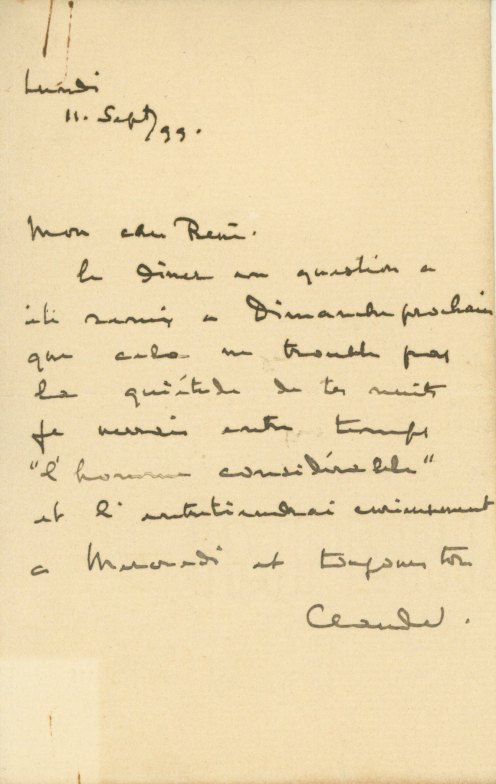 Lundi
11. Sept/99.
Mon cher René.
le dîner en question a
été remis a Dimanche prochain
que cela ne trouble pas
la quiétude de tes nuits
je verrais entre temps
"l'homme considérable"
et l'entretiendrai curieusement
a Mercredi et toujours ton
Claude.